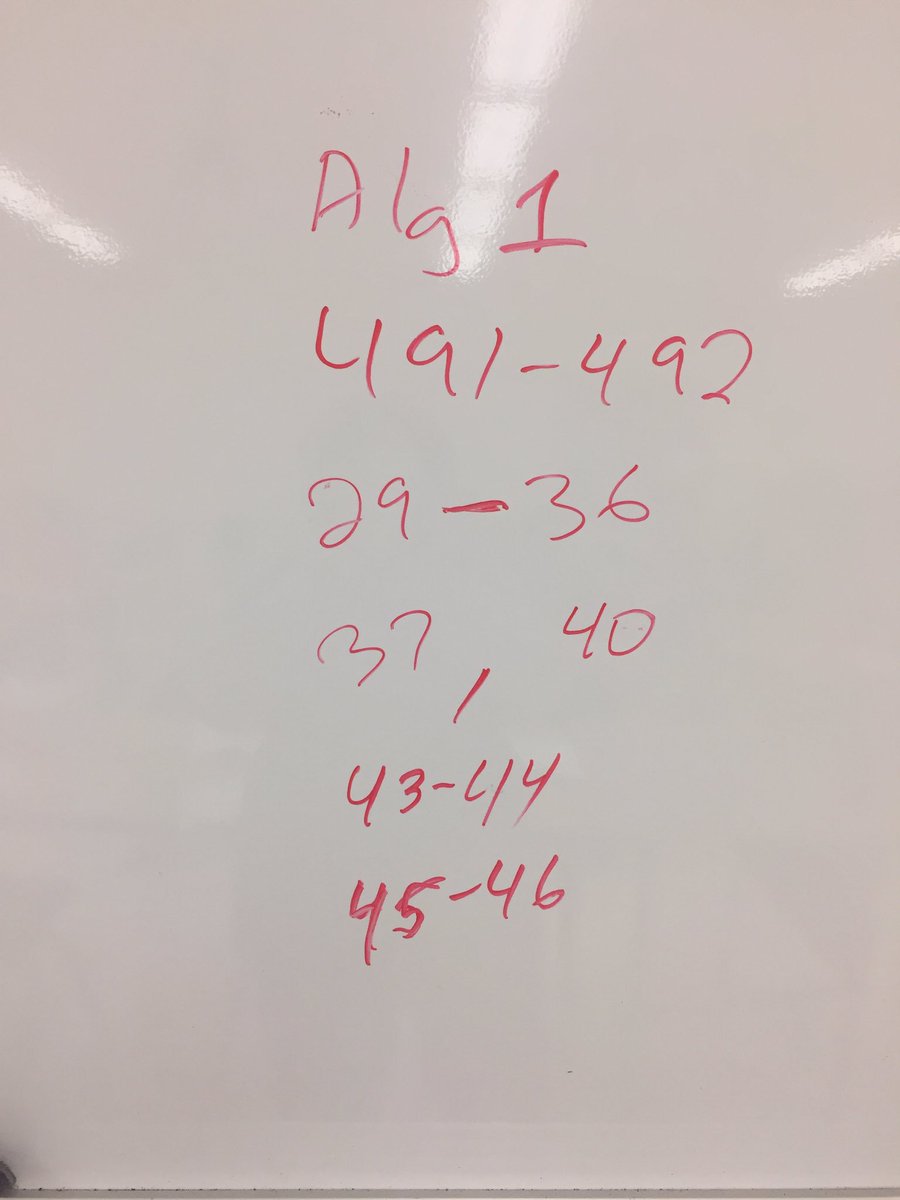 Alg 1
491-492
29-36
37, 40
43-44
45-46